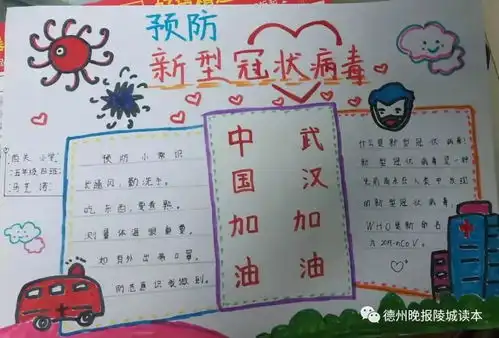 预防
新型冠状病毒
五年级四班
预防小常识
常通风，勤洗手。
吃东西，要煮熟。
测量体温很重要。
如果外出戴口罩，
防范意识我做到。
中国加油
武汉加油
什么是新型冠状病毒：
新型冠状病毒是一种
先前尚未在人类中发现
的新型冠状病毒。
WHO最新命名
为2019-nCoV。
德州晚报陵城读本